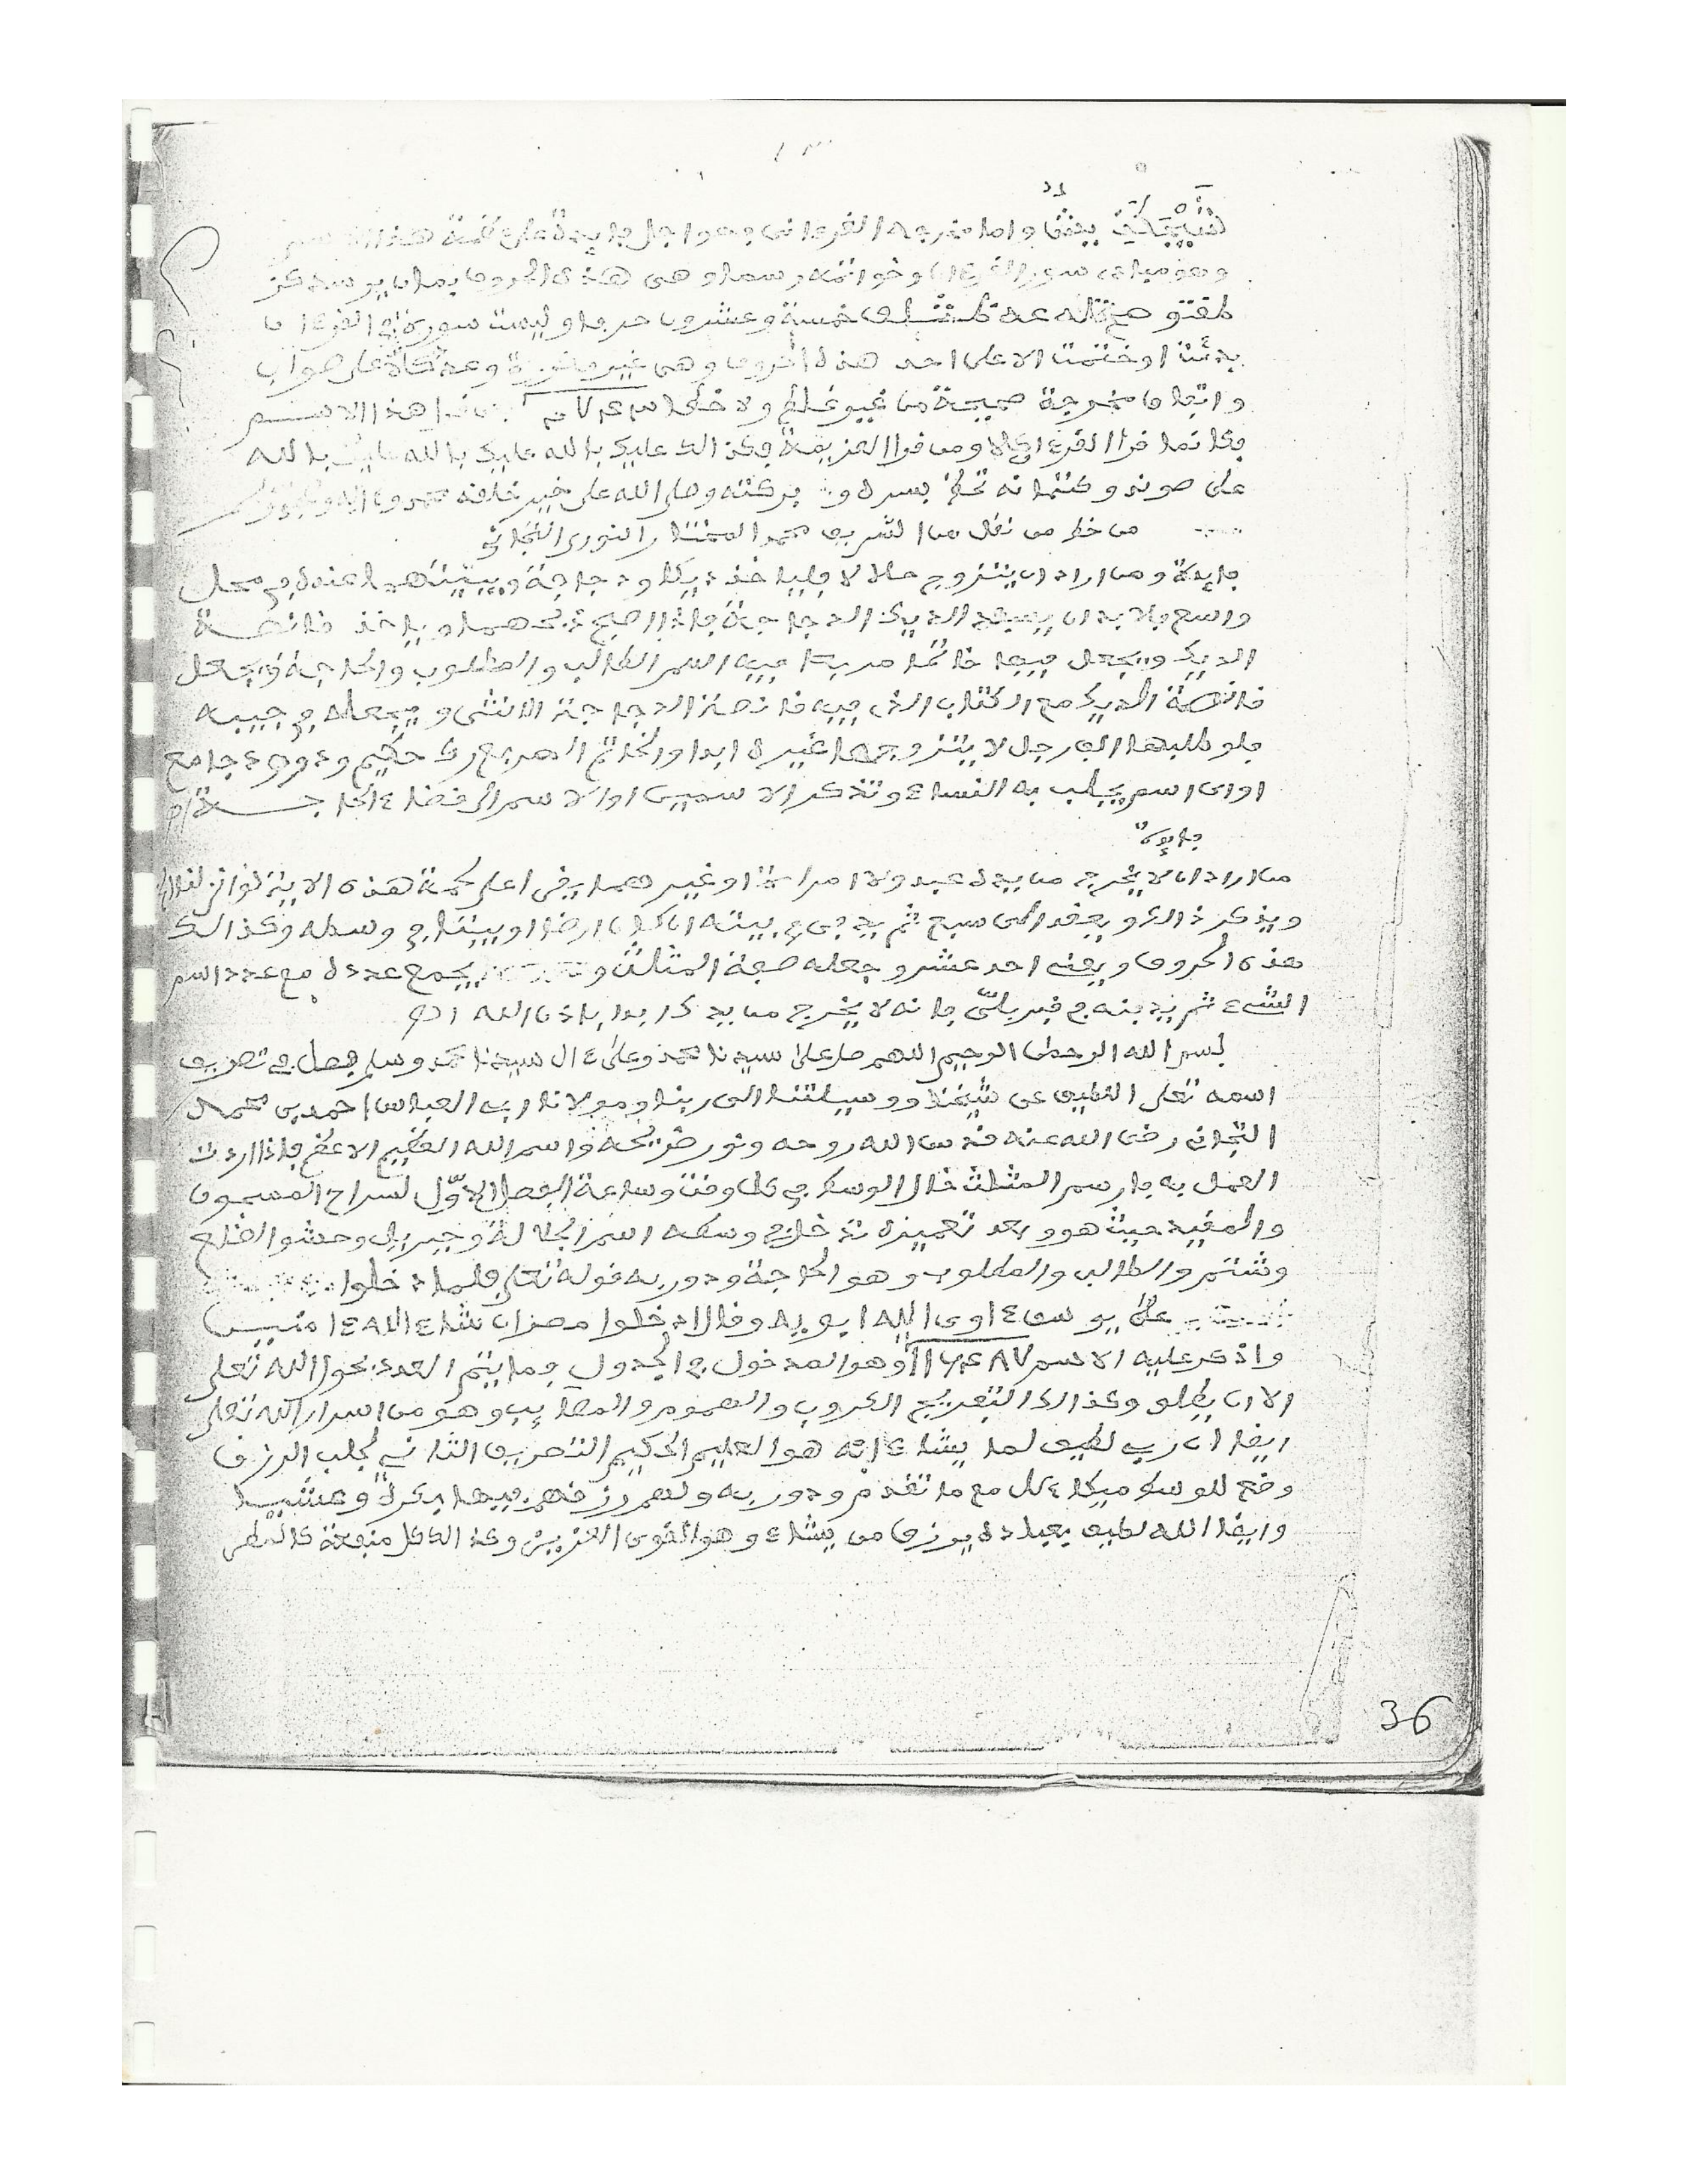 واما مخرجه القرءاني وهو اجل فايدة على كمة هذا الاسم
وهو مبادى سور القرءان وخواتمه رسما وهي هذه الحروف
خمسة وعشرون حرفا وليست سورة في القرءان
بدئت او ختمت الا على احد هذه الحروف وهي غير مكررة وعدة كاملة على صواب
واتقان مخرجة صحيحة من غير غلط ولا خطا هذا الاسم
فكانما قرا القرءان كله ومن قرا العزيمة فكذالك عليك بالله عليك بالله عليك بالله
على صونه وكتمانه تحظى بسره و بركته وصلى الله على خير خلقه محمد وءاله
من خط من نقل من الشريف محمد المختار النوري التجاني
فايدة ومن اراد ان يتزوج حلالا فلياخذ ديكا ودجاجة ويبيتهما عنده في محل
واسع فلا بد ان يسفد الديك الدجاجة فاذا اصبح ذبحهما وياخذ قانصة
الديك ويجعل فيها خاتما مربعا فيه اسم الطالب والمطلوب والحاجة ويجعل
قانصة الديك مع الكتاب الذي فيه قانصة الدجاجة الانثى ويجعله في جيبه
فلو طلبها الف رجل لا يتزوجها غيره ابدا والخاتم المربع حكيم ودود جامع
او اى اسم يجلب به النساء وتذكر الاسمين او الاسم الى قضاء الحاجة اه
فايدة
من اراد ان لا يخرج من يده عبد ولا امراة او غيرهما يقرا على كمة هذه الاية لو انزلنا الخ
ويذكر ذالك ويعقد الى سبع ثم يدفن في بيته ان كان ارضا او بيتا في وسطه وكذالك
هذه الحروف احد عشر وجعله صفة المثلث و يجمع عدده مع عدد اسم
الشيء ثم يدفنه في قبر بلي فانه لا يخرج من يدك ابدا باذن الله اه
بسم الله الرحمن الرحيم اللهم صل على سيدنا محمد وعلى ءال سيدنا محمد وسلم فصل في تصريف
اسمه تعلى اللطيف عن شيخنا ووسيلتنا الى ربنا ومولانا ابي العباس احمد بن محمد
التجاني رضى الله عنه قدس الله روحه ونور ضريحه واسم الله العظيم الاعظم فاذا اردت
العمل به فارسم المثلث خال الوسط في كل وقت وساعة الفصل الاول لسراح المسجون
والمقيد حيث هو وبعد تعميره تدخل في وسطه اسم الجلالة وجبريل وحشو الضلع
وشتم والطالب والمطلوب وهو الحاجة ودور به قوله تعلى فلما دخلوا
على يوسف ءاوى اليه ابويه وقال ادخلوا مصر ان شاء الله ءامنين
واذكر عليه الاسم وهو المدخول في الجدول وما يتم العدد بحول الله تعلى
الا ان يطلو وكذالك لتفريج الكروب والهموم والمصايب وهو من اسرار الله تعلى
ايضا ان ربي لطيف لما يشاء انه هو العليم الحكيم التصريف الثاني لجلب الرزق
وضع للوسط ميكاءيل مع ما تقدم ودور به ولهم رزقهم فيها بكرة وعشيا
وايضا الله لطيف بعباده يرزق من يشاء وهو القوى العزيز وكذالك كل منفعة كالمطر
36